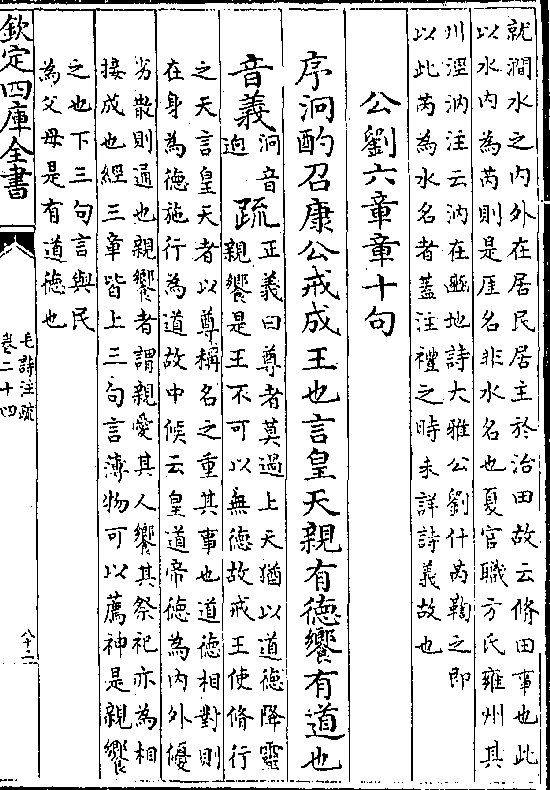 就澗水之内外在居民居主於治田故云脩田事也此
以水内為芮則是厓名非水名也夏官職方氏雍州其
川涇汭注云汭在豳地詩大雅公劉什芮鞫之即
以此芮為水名者蓋注禮之時未詳詩義故也
公劉六章章十句
序泂酌召康公戒成王也言皇天親有德饗有道也
音義
泂音
迥
疏
正義曰尊者莫過上天猶以道德降靈
親饗是王不可以無德故戒王使脩行
之天言皇天者以尊稱名之重其事也道德相對則
在身為德施行為道故中候云皇道帝德為内外優
劣散則通也親饗者謂親愛其人饗其祭祀亦為相
接成也經三章皆上三句言薄物可以薦神是親饗
之也下三句言與民
為父母是有道德也
欽定四庫全書
毛詩注疏
卷二十四